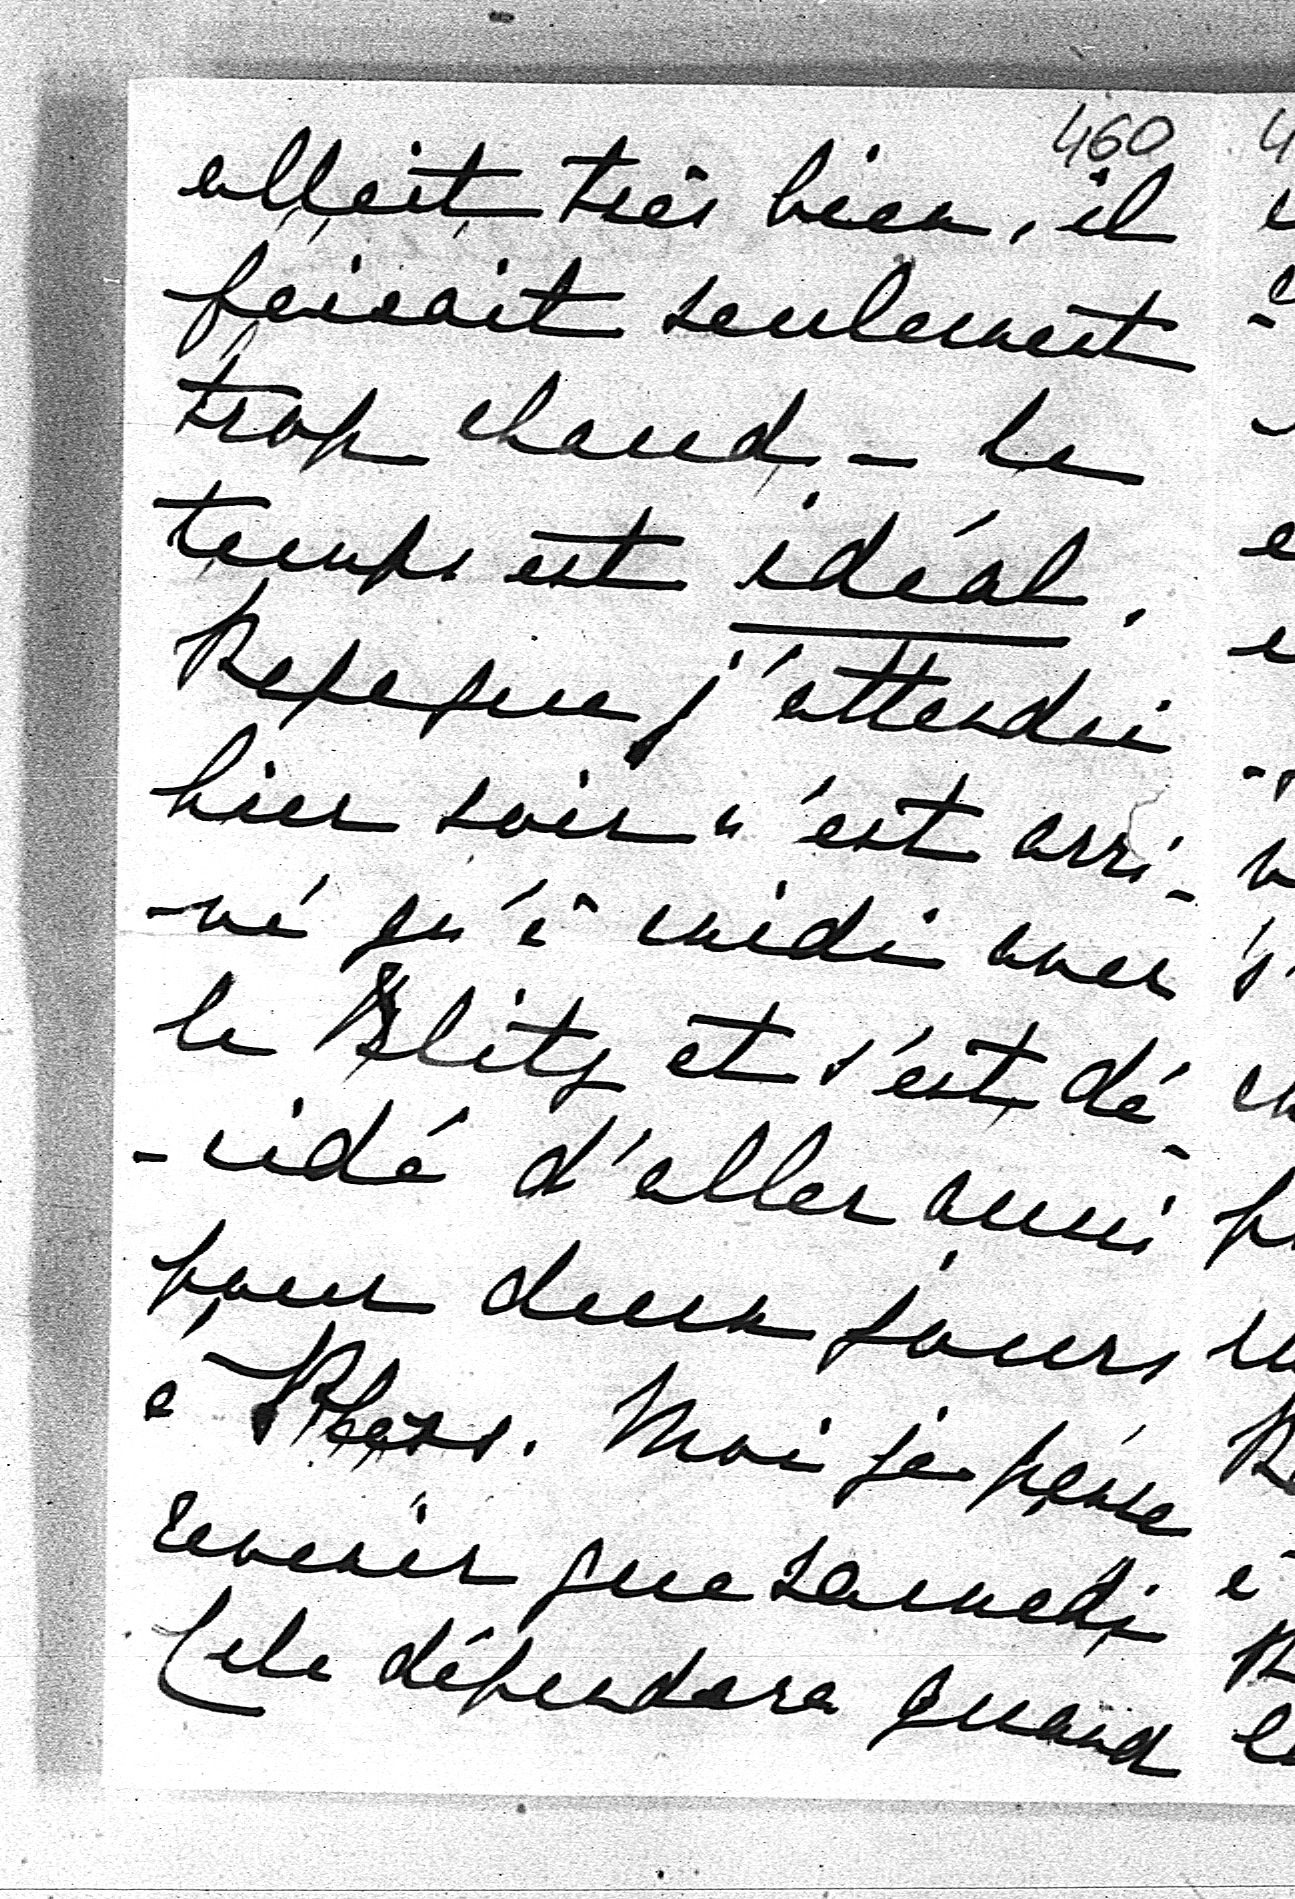 460
allait très bien, il
faisait seulement
trop chaud - le
temps est idéal.
que j'attendai
hier soir n'est arri-
-vé qu'à midi avec
le Blitz et s'est dé-
-cidé d'aller aussi
pour deux jours
à Moi je pense
revenir que samedi
Cela dépendera quand